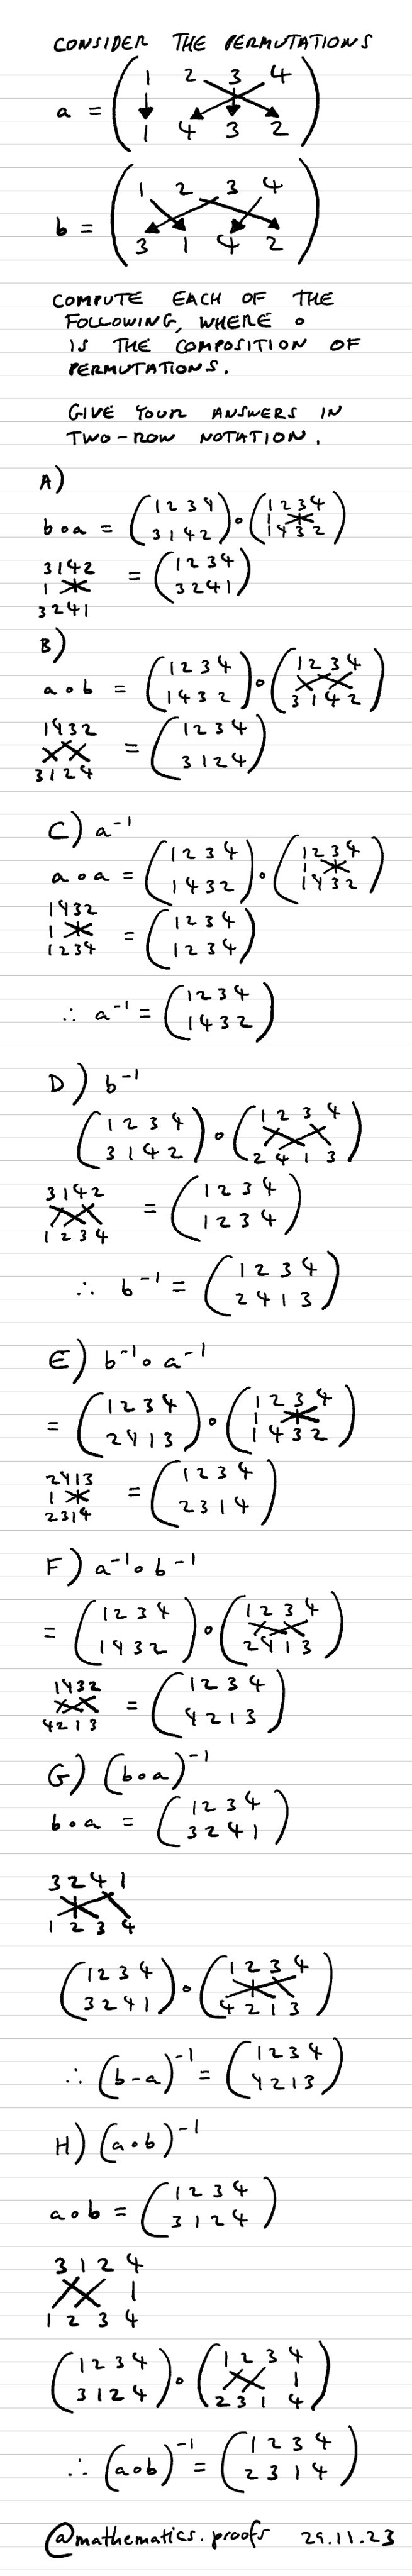 CONSIDER THE PERMUTATIONS
1 2 3 4
a =
1 4 3 2
1 2 3 4
b =
3 1 4 2
COMPUTE EACH OF THE
FOLLOWING, WHERE ∘
IS THE COMPOSITION OF
PERMUTATIONS.
GIVE YOUR ANSWERS IN
TWO-ROW NOTATION.
A)
b∘a = (1 2 3 4 / 3 1 4 2)∘(1 2 3 4 / 1 4 3 2)
3142
1
3241
= (1 2 3 4 / 3 2 4 1)
B)
a∘b = (1 2 3 4 / 1 4 3 2)∘(1 2 3 4 / 3 1 4 2)
1432
3124
= (1 2 3 4 / 3 1 2 4)
C) a⁻¹
a∘a = (1 2 3 4 / 1 4 3 2)∘(1 2 3 4 / 1 4 3 2)
1432
1
1234
= (1 2 3 4 / 1 2 3 4)
∴ a⁻¹ = (1 2 3 4 / 1 4 3 2)
D) b⁻¹
(1 2 3 4 / 3 1 4 2)∘(1 2 3 4 / 2 4 1 3)
3142
1234
= (1 2 3 4 / 1 2 3 4)
∴ b⁻¹ = (1 2 3 4 / 2 4 1 3)
E) b⁻¹∘a⁻¹
= (1 2 3 4 / 2 4 1 3)∘(1 2 3 4 / 1 4 3 2)
2413
1
2314
= (1 2 3 4 / 2 3 1 4)
F) a⁻¹∘b⁻¹
= (1 2 3 4 / 1 4 3 2)∘(1 2 3 4 / 2 4 1 3)
1432
4213
= (1 2 3 4 / 4 2 1 3)
G) (b∘a)⁻¹
b∘a = (1 2 3 4 / 3 2 4 1)
3 2 4 1
1 2 3 4
(1 2 3 4 / 3 2 4 1)∘(1 2 3 4 / 4 2 1 3)
∴ (b-a)⁻¹ = (1 2 3 4 / 4 2 1 3)
H) (a∘b)⁻¹
a∘b = (1 2 3 4 / 3 1 2 4)
3 1 2 4
1 2 3 4
(1 2 3 4 / 3 1 2 4)∘(1 2 3 4 / 2 3 1 4)
∴ (a∘b)⁻¹ = (1 2 3 4 / 2 3 1 4)
@mathematics.proofs 29.11.23